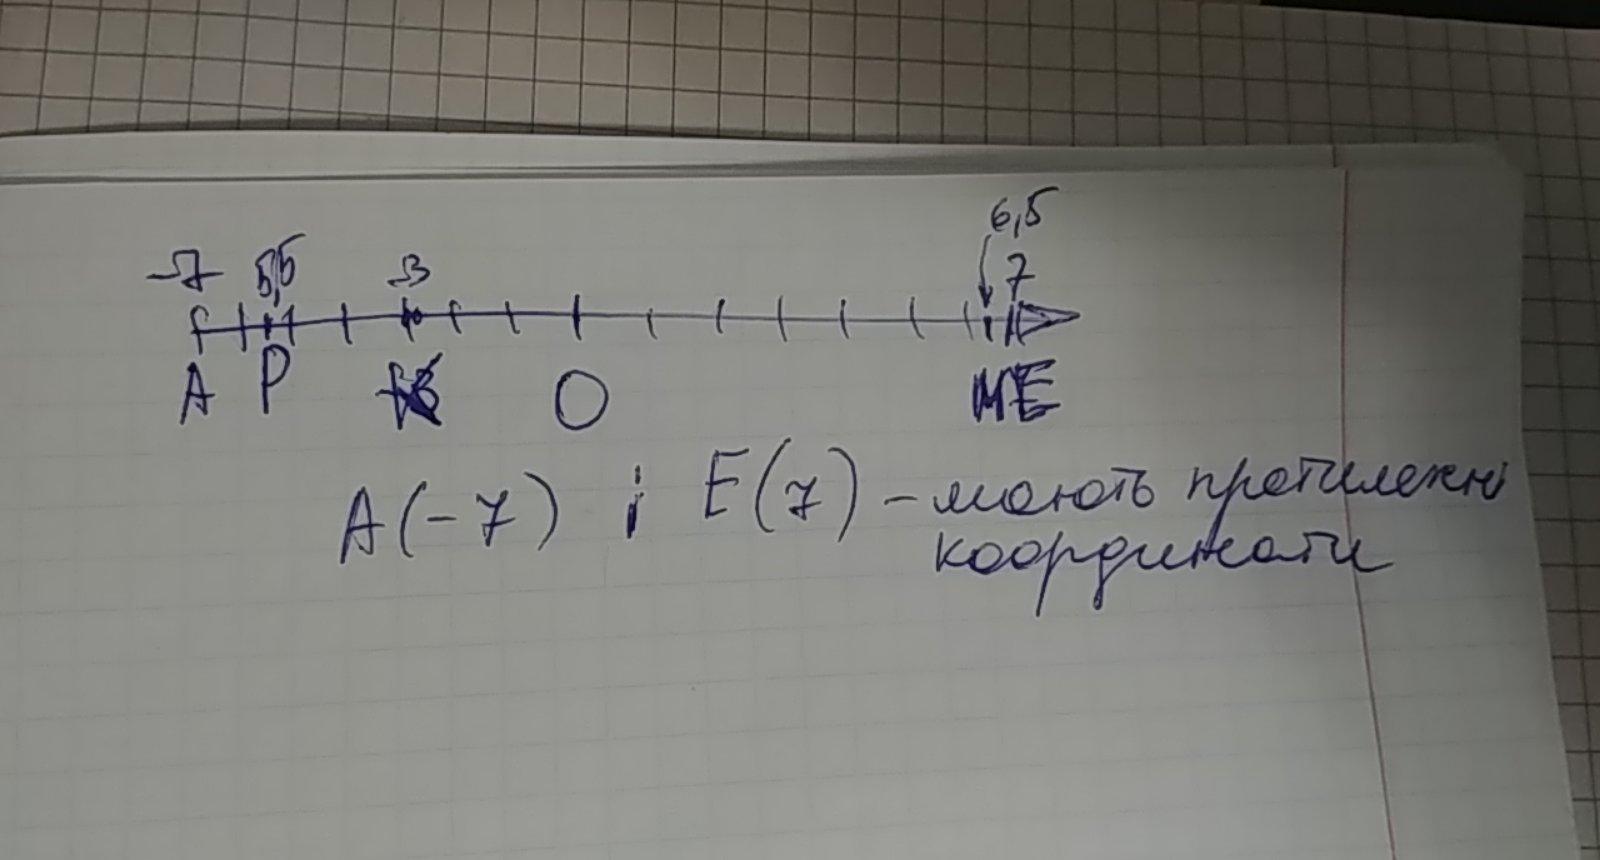 6,5
-7 5,5 -3 7
A P К O M E
A(-7) і E(7) - мають протилежні
координати